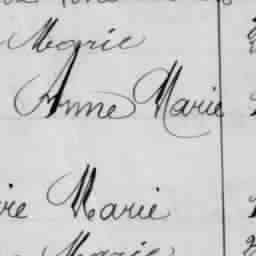 Marie
Anne Marie
Marie
Marie